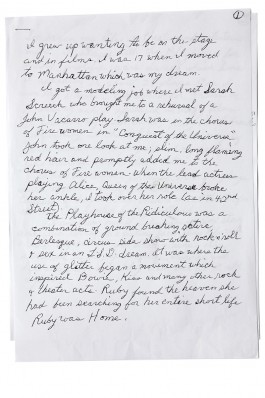 ①
I grew up wanting to be on the stage
and in films. I was 17 when I moved
to Manhattan which was my dream.
I got a modeling job where I met Sarah
who brought me to a rehearsal of a
John Vaccaro play. Sarah was in the chorus
of Fire women in "Conquest of the Universe"
John took one look at me, slim, long flaming
red hair and promptly added me to the
chorus of Fire women. When the lead actress
playing Alice, Queen of the Universe broke
her ankle, I took over her role (ac in 42nd
Street)
The Playhouse of the Ridiculous was a
combination of ground breaking satire,
Berlesque, circus side show with rock n roll
& sex in an LSD dream. It was where the
use of glitter began a movement which
inspired Bowie, Kiss and many other rock
& theater acts. Ruby found the heaven she
had been searching for her entire short life
Ruby was Home.